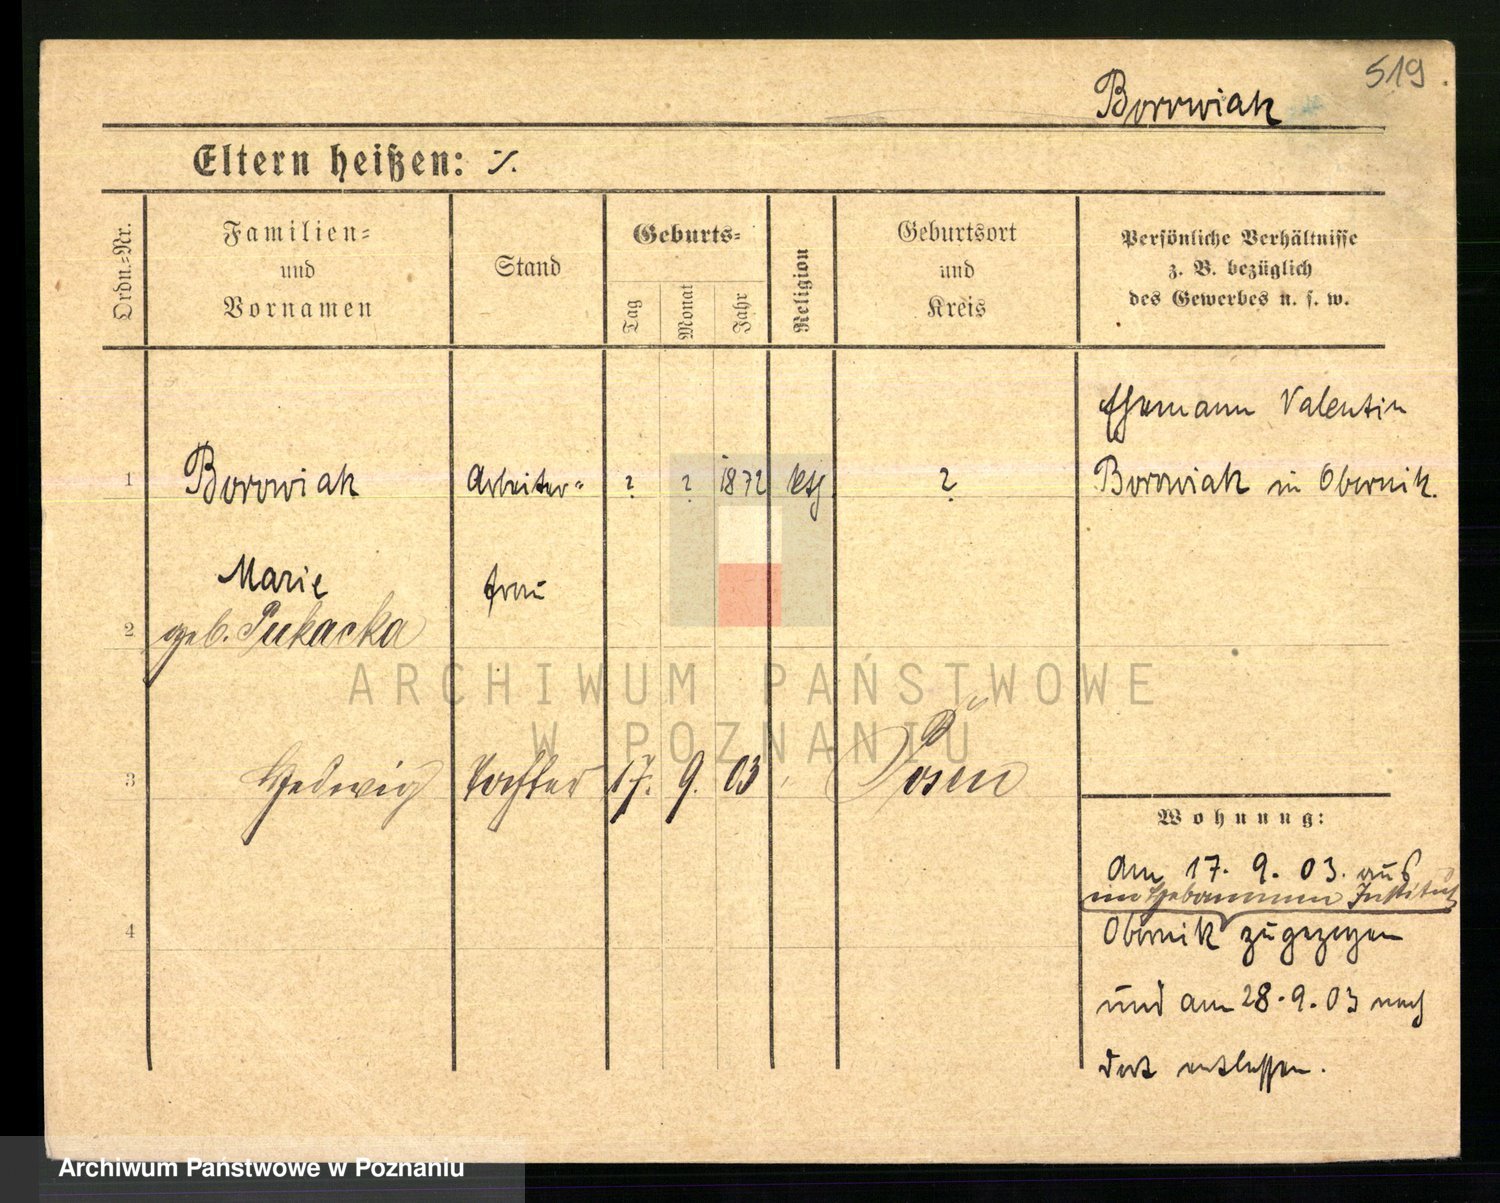 519
Borowiak
Eltern heißen: ./.
Ordn.-Nr.
Familien-
und
Vornamen
Stand
Geburts-
Tag
Monat
Jahr
Religion
Geburtsort
und
Kreis
Persönliche Verhältnisse
z. B. bezüglich
des Gewerbes u. s. w.
Ehemann Valentin
1 Borowiak Arbeiter- ? ? 1872 ktℎ ? Borowiak in Obernik.
Marie frau
2 geb. Pukacka
ARCHIWUM PAŃSTWOWE
W POZNANIU
3 Hedwig Tochter 17. 9. 03 Posen
Wohnung:
Am 17. 9. 03. aus
im Hebammen Institut
4 Obernik zugezogen
und am 28.9.03 nach
dort entlassen.
Archiwum Państwowe w Poznaniu